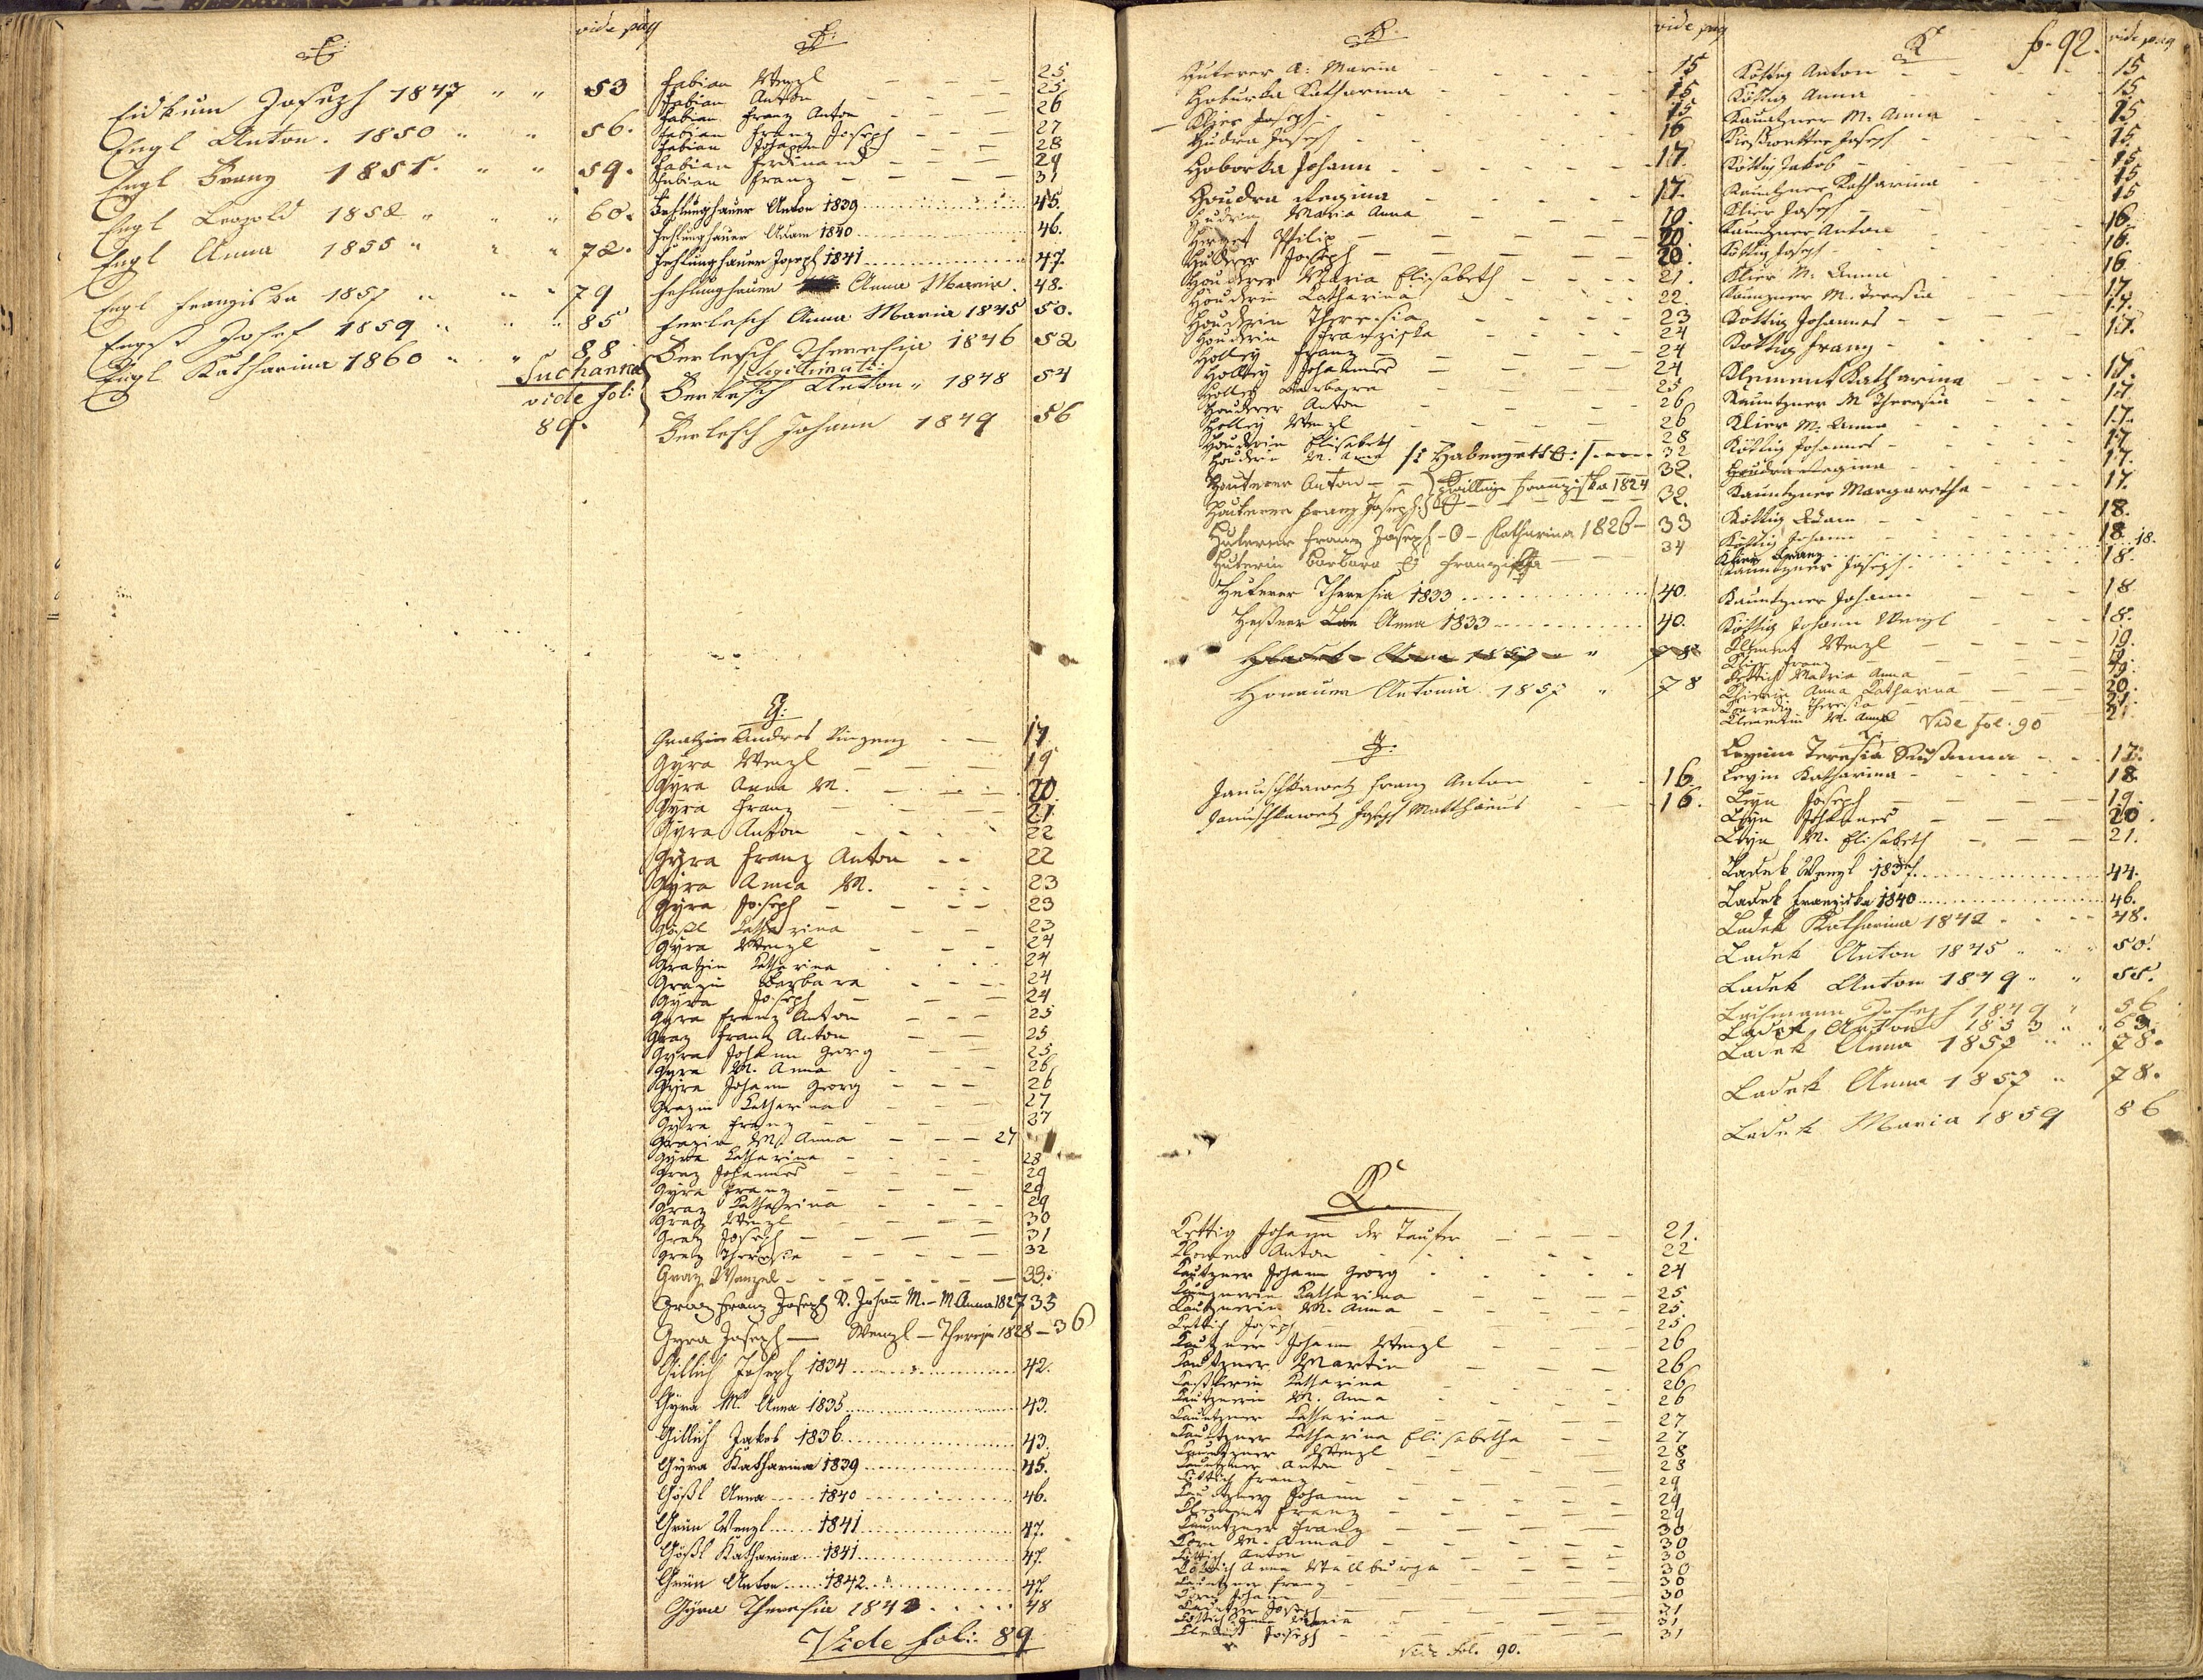 E.
vide pag
Eidkum Joseph 1847 " " 53
Engl Anton. 1850 " " 56.
Engl Franz 1851. " " 59.
Engl Leopold 1852 " " 60.
Engl Anna 1855 " " 72.
Engl Franziska 1857 " " 79
Josef 1859 " " 85
Engl Katharina 1860 " " 88
Suchanna
vide fol:
89.
F.
Fabian Wenzl 25
Fabian Anton 25
Fabian Franz Anton 26
Fabian Franz Joseph 27
Fabian Johann 28
Fabian Ferdinand 29
Fabian Franz 31
Fehlinghauer Anton 1839 45.
Fehlinghauer Adam 1840 46.
Fehlinghauer Joseph 1841 47.
Fehlinghauer Anna Maria. 48.
Ferlesch Anna Maria 1845 50.
Ferlesch Theresia 1846 52
legitimati:
Ferlesch Anton " 1848 54
Ferlesch Johann 1849 56
G:
Gratzin Andres Vinzenz 17
Gyra Wenzl 19
Gyra Anna M. 20
Gyra Franz 21.
Gyra Anton 22
Gyra Franz Anton 22
Gyra Anna M. 23
Gyra Joseph 23
Gößl Katharina 23
Gyra Wenzl 24
Gratzin Katharina 24
Grazin Barbara 24
Gyra Joseph 24
Gyra Franz Anton 25
Graz Franz Anton 25
Gyra Johann Georg 25
Gyra M. Anna 26
Gyra Johann Georg 26
Grazin Katharina 27
Gyra Franz 27
Grazin M. Anna 27
Gyra Katharina 28
Graz Johannes 29
Gyra Franz 29
Graz Katharina 29
Graz Wenzl 30
Graz Joseph 31
Graz Theresia 32
Graz Wenzel 33.
Graz Franz Joseph D. Johann M. - M Anna 1827 35
Gyra Joseph — Wenzl - Theresia 1828 - 36
Gillich Joseph 1834 42.
Gyra M. Anna 1835 43.
Gillich Jakob 1836 43.
Gyra Katharina 1839 45.
Gößl Anna 1840 46.
Grün Wenzl 1841 47.
Gößl Katharina 1841 47.
Grün Anton 1842 47.
Gyra Theresia 1843 48
Vide fol: 89
H.
vide pag
Huterer A: Maria 15
Hoburka Katharina 15
Klier Joseph 15
Hudra Joseph 16
Hoborka Johann 17.
Houdra Regina 17.
Hudrin Maria Anna 19.
Herget Philip 20.
Huderer Joseph 20
Houderer Maria Elisabeth 21.
Houdrin Katharina 22.
Houdrin Theresia 23
Houdrin Franziska 24
Holley Franz 24
Holley Johannes 24
Holley Barbara 25
Houderer Anton 26
Holley Wenzl 26
Houdrin Elisabeth 28
Houdrin M. Anna /: Habergettl :/ 32
Houterer Anton - Zwillinge Franziska 1824 32.
Houterer Franz Joseph 32.
Huterer Franz Joseph - O - Katharina 1826 - 33
Huterin Barbara Franziska 34
Huterer Theresia 1833 40.
Heßner Anna 1833 40.
Anna 1857 " 78
Honauer Antonia 1857 " 78
J:
Januschkawetz Franz Anton 16.
Januschkawetz Joseph Matthäus 16.
K.
Kettig Johann der Taufer 21.
Klement Anton 22
Kautzner Johann Georg 24
Kautznerin Katharina 25
Kautznerin M. Anna 25.
Kettich Joseph 25
Kautzner Johann Wenzl 26
Kautzner Martin 26
Katharina 26
Kautznerin M. Anna 26
Kauntzner Katharina 27
Kautzner Katharina Elisabetha 27
Kauntzner Wenzl 28
Kauntzner Anton 28
Kittlich Franz 29
Kautzner Johann 29
Klement Franz 29
Kauntzner Franz 30
Korn M. Anna 30
Köttich Anton 30
Köttich Anna Wallburga 30
Kautzner Franz 30
Korn Johann 30
Kautzner Joseph 31
Köttich Maria 31
Klement Joseph 31
Vide fol. 90.
K
f. 92.
vide pag
Köttig Anton 15
Köttig Anna 15
Kauntzner M. Anna 15
Kießwetter Joseph 15.
Köttig Jakob 15
Kauntzner Katharina 15
Klier Joseph 15
Kauntzner Anton 16.
Köttig Joseph 16.
Klier M. Anna 16
Kauntzner M. Teresia 17.
Kottig Johannes 17.
Kottig Franz 17.
Klement Katharina 17.
Kauntzner M Theresia 17.
Klier M. Anna 17.
Köttig Johannes 17
Houdra Regina 17.
Kauntzner Margaretha 17.
Köttig Adam 18.
Köttig Johann 18
Klier Franz 18.
Kauntzner Joseph 18.
Kauntzner Johann 18
Köttig Johann Wenzl 18.
Klement Wenzl 19.
Klier Franz 19.
Kettich Maria Anna 19.
Klierin Anna Katharina 20.
Konradin Theresia 21.
Klementin M. Anna Vide fol. 90 21.
L.
Leyin Teresia Susanna 17.
Leyin Katharina 18
Leyn Joseph 19.
Leyn Johannes 20.
Leyn M. Elisabeth 21.
Ladek Wenzl 1837 44.
Ladek Franziska 1840 46.
Ladek Katharina 1842 48.
Ladek Anton 1845 50.
Ladek Anton 1849 55.
Joseph 1849 " 56
Ladek Anton 1853 " 63.
Ladek Anna 1857 " 78.
Ladek Anna 1857 " 78.
Ladek Maria 1859 86